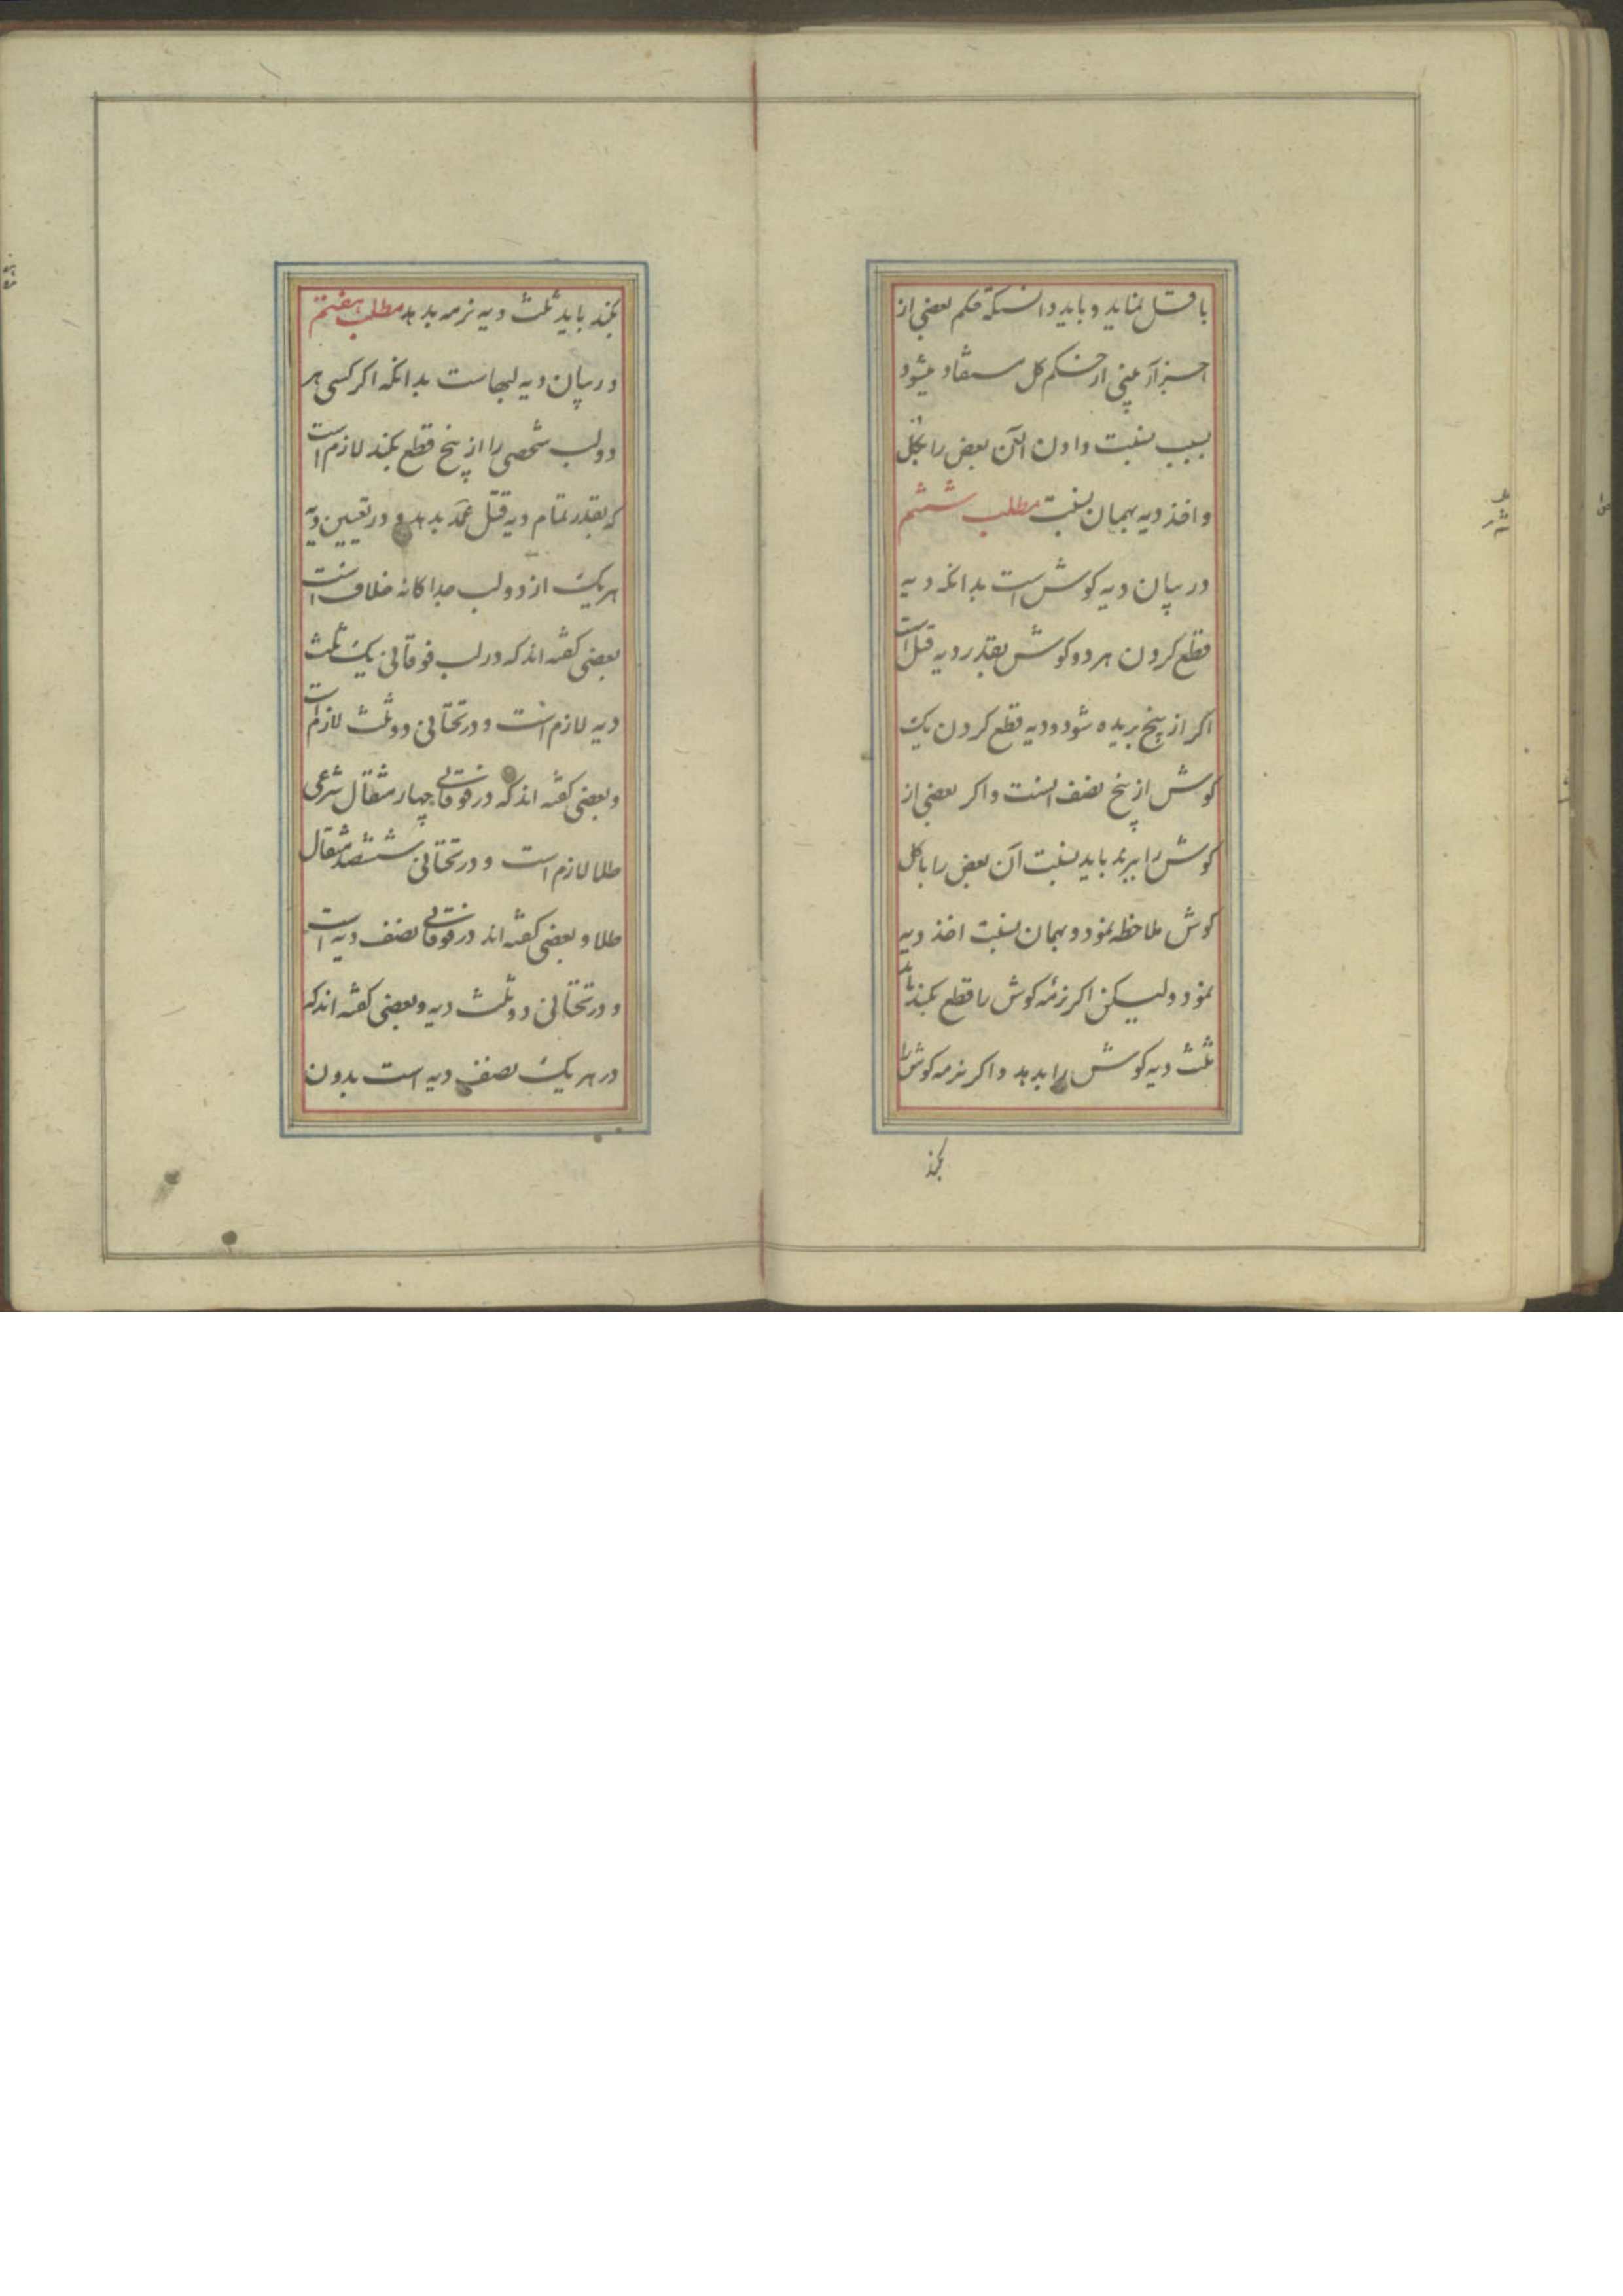 با قتل نماید و باید دانست که حکم بعضی از
اجزآء بینی از حکم کل مستفاد میشود
بسبب نسبت دادن آن بعض را بکل
و اخذ دیه بهمان نسبت مطلب ششم
در بیان دیه کوش است بدانکه دیه
قطع کردن هر دو کوش بقدر دیه قتل است
اکر از بیخ بریده شود و دیه قطع کردن یک
کوش از بیخ نصف انست و اکر بعضی از
کوش را ببرند باید نسبت آن بعض را با کل
کوش ملاحظه نمود و بهمان نسبت اخذ دیه
نمود و لیکن اکر نرمه کوش را قطع بکند باید
ثلث دیه کوش را بدهد و اکر نرمه کوش را
بکند
بکند باید ثلث دیه نرمه بدهد مطلب هفتم
در بیان دیه لبهاست بدانکه اکر کسی هر
دو لب شخصی را از بیخ قطع بکند لازم است
که بقدر تمام دیه قتل عمد بدهد و در تعیین دیه
هر یک از دو لب جداکانه خلاف است
بعضی کفته اند که در لب فوقانی یک ثلث
دیه لازم است و در تحتانی دو ثلث لازم است
و بعضی کفته اند که در فوقانی چهار مثقال شرعی
طلا لازم است و در تحتانی ششصد مثقال
طلا و بعضی کفته اند در فوقانی نصف دیه است
و در تحتانی دو ثلث دیه و بعضی کفته اند که
در هر یک نصف دیه است بدون